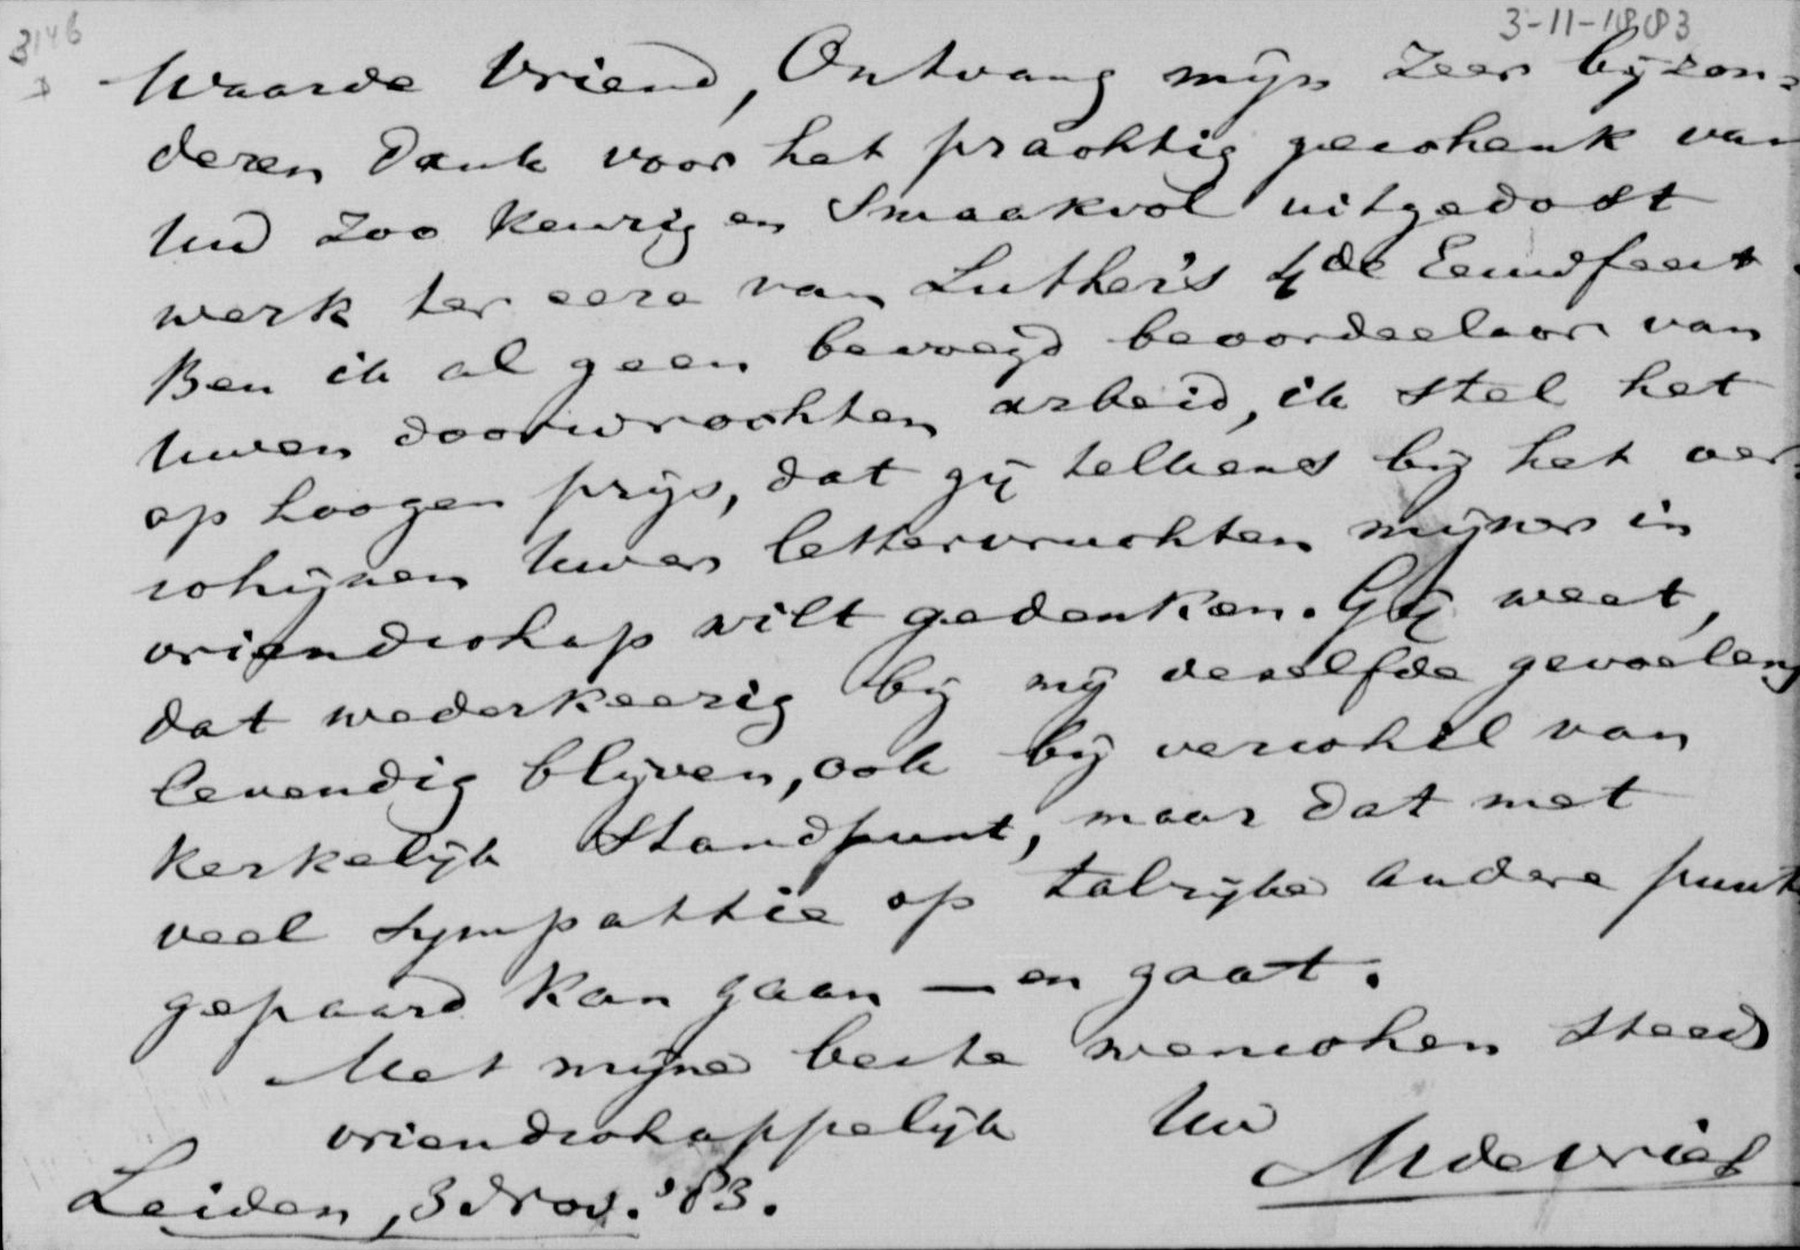 3146
3-11-1883
Waarde Vriend, Ontvang mijn zeer bijzon=
deren dank voor het prachtig geschenk van
Uw zoo keurig en smaakvol uitgedost
werk ter eere van Luther's 4de Eeuwfeest.
Ben ik al geen bevoegd beoordeelaar van
Uwen doorwrochten arbeid, ik stel het
op hoogen prijs, dat gij telkens bij het ver=
schijnen Uwer lettervruchten mijner in
vriendschap wilt gedenken. Gij weet,
dat wederkeerig bij mij dezelfde gevoelens
levendig blijven, ook bij verschil van
kerkelijk standpunt, maar dat met
veel sympathie op talrijke andere punten
gepaard kan gaan — en gaat.
Met mijne beste wenschen steeds
vriendschappelijk Uw
MdeVries
Leiden, 3 Nov. '83.